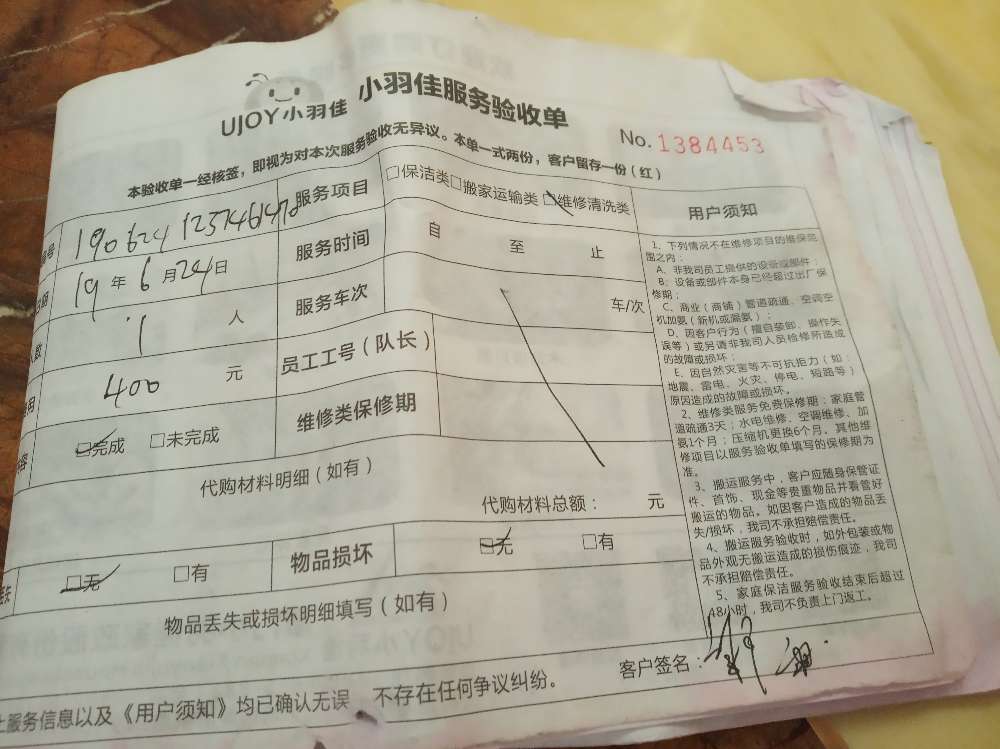 UJOY小羽佳 小羽佳服务验收单
No. 1384453
本验收单一经核签，即视为对本次服务验收无异议。本单一式两份，客户留存一份（红）
号 服务项目 □保洁类□搬家运输类□维修清洗类 用户须知
19年6月24日 服务时间 自 至 止
1 人 服务车次 车/次
400 元 员工工号（队长）
□完成 □未完成 维修类保修期
代购材料明细（如有）
代购材料总额： 元
□无 □有 物品损坏 □无 □有
物品丢失或损坏明细填写（如有）
1、下列情况不在维修项目的维保范
围之内：
A、非我司员工提供的设备或部件；
B、设备或部件本身已经超过出厂保
修期；
C、商业（商铺）管道疏通、空调空
机加氨（新机或漏氨）；
D、因客户行为（擅自装卸、操作失
误等）或另请非我司人员检修所造成
的故障或损坏；
E、因自然灾害等不可抗拒力（如：
地震、雷电、火灾、停电、短路等）
原因造成的故障或损坏。
2、维修类服务免费保修期：家庭管
道疏通3天；水电维修、空调维修、加
氨1个月；压缩机更换6个月，其他维
修项目以服务验收单填写的保修期为
准。
3、搬运服务中，客户应随身保管证
件、首饰、现金等贵重物品并看管好
搬运的物品。如因客户造成的物品丢
失/损坏，我司不承担赔偿责任。
4、搬运服务验收时，如外包装或物
品外观无搬运造成的损伤痕迹，我司
不承担赔偿责任。
5、家庭保洁服务验收结束后超过
48小时，我司不负责上门返工。
客户签名：
上服务信息以及《用户须知》均已确认无误 不存在任何争议纠纷。